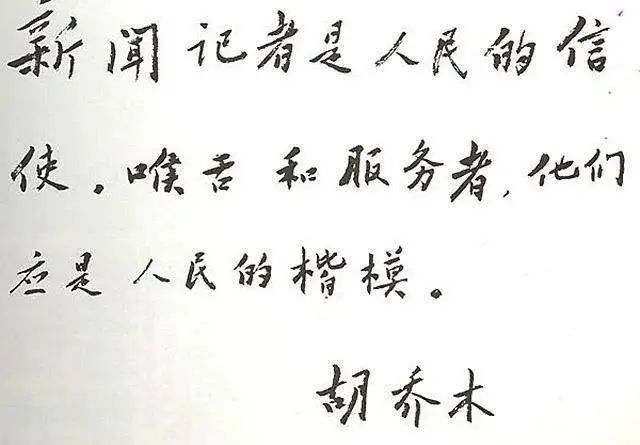 新闻记者是人民的信
使、喉舌和服务者,他们
应是人民的楷模。
胡乔木